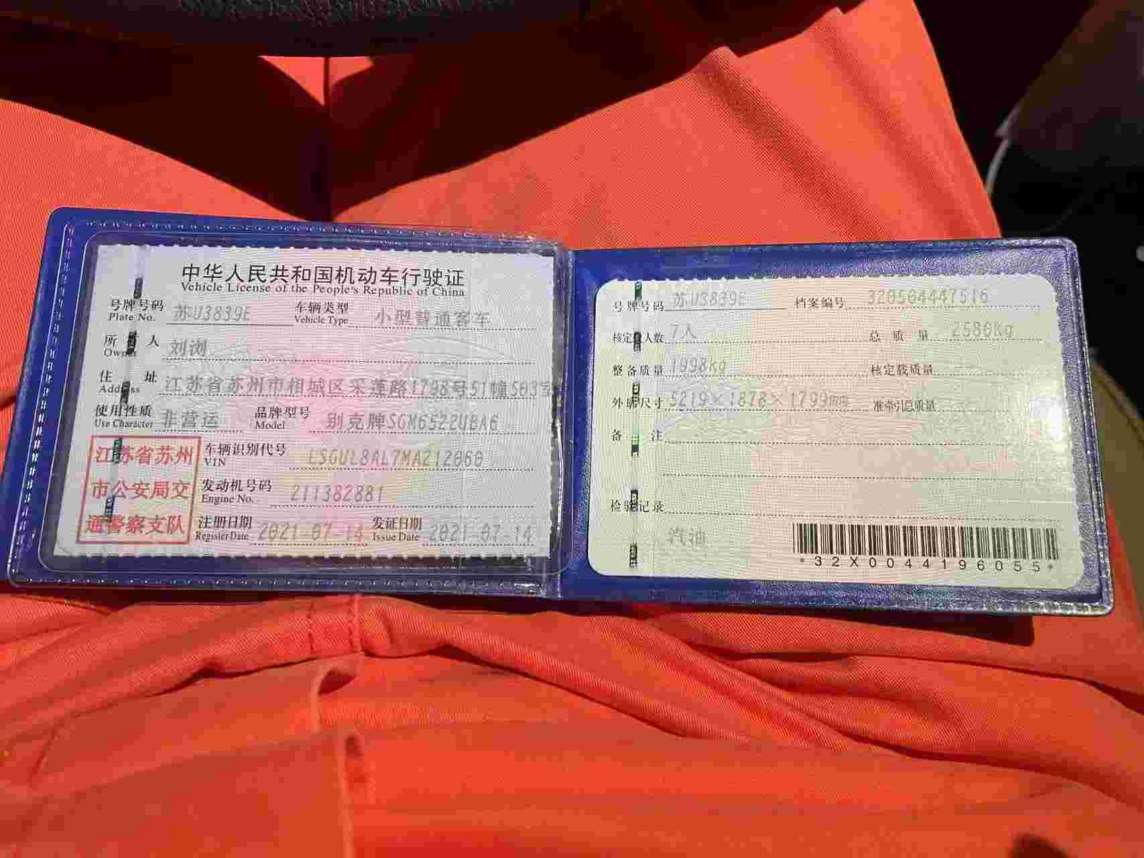 中华人民共和国机动车行驶证
Vehicle License of the People's Republic of China
号牌号码 苏U3839E 车辆类型 小型普通客车
Plate No. Vehicle Type
所 人 刘浏
Owner
住 址 江苏省苏州市相城区采莲路1798号51幢503室
Address
使用性质 非营运 品牌型号 别克牌SGM6522UBA6
Use Character Model
江苏省苏州
市公安局交
通警察支队
车辆识别代号 LSGUL8AL7MA212060
VIN
发动机号码 211382881
Engine No.
注册日期 2021-07-14 发证日期 2021-07-14
Register Date Issue Date
号牌号码 苏U3839E 档案编号 320504447516
核定 人数 7人 总质量 2580kg
整备质量 1998kg 核定载质量
外 尺寸 5219×1878×1799 准牵引总质量
备 注
检验记录
汽油
*32X0044196055*